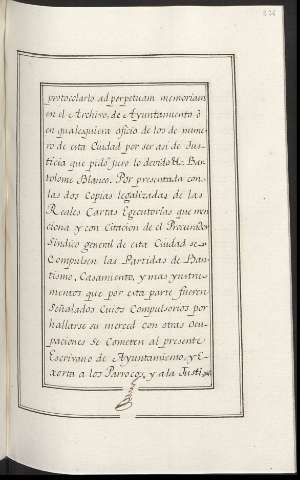 protocolarlo ad perpetuam memoriam
en el Archivo, de Ayuntamiento ò
en qualesquiera oficio de los de nume
ro de esta Ciudad por ser asi de Jus-
ticia que pido juro lo devido &c. Bar-
tolome Blanco. Por presentada con
las dos Copias legalizadas de las
Reales Cartas Egecutorias que men
ciona y con Citacion de el Procurador
Sindico general de esta Ciudad se
Compulsen las Partidas de Bau-
tismo, Casamiento, y mas ynstru-
mentos que por esta parte fueren
Señalados Cuios Compulsorios por
hallarse su merced con otras Ocu-
paciones se Cometen al presente
Escrivano de Ayuntamiento, y E-
xorta a los Parrocos, y a la Justi